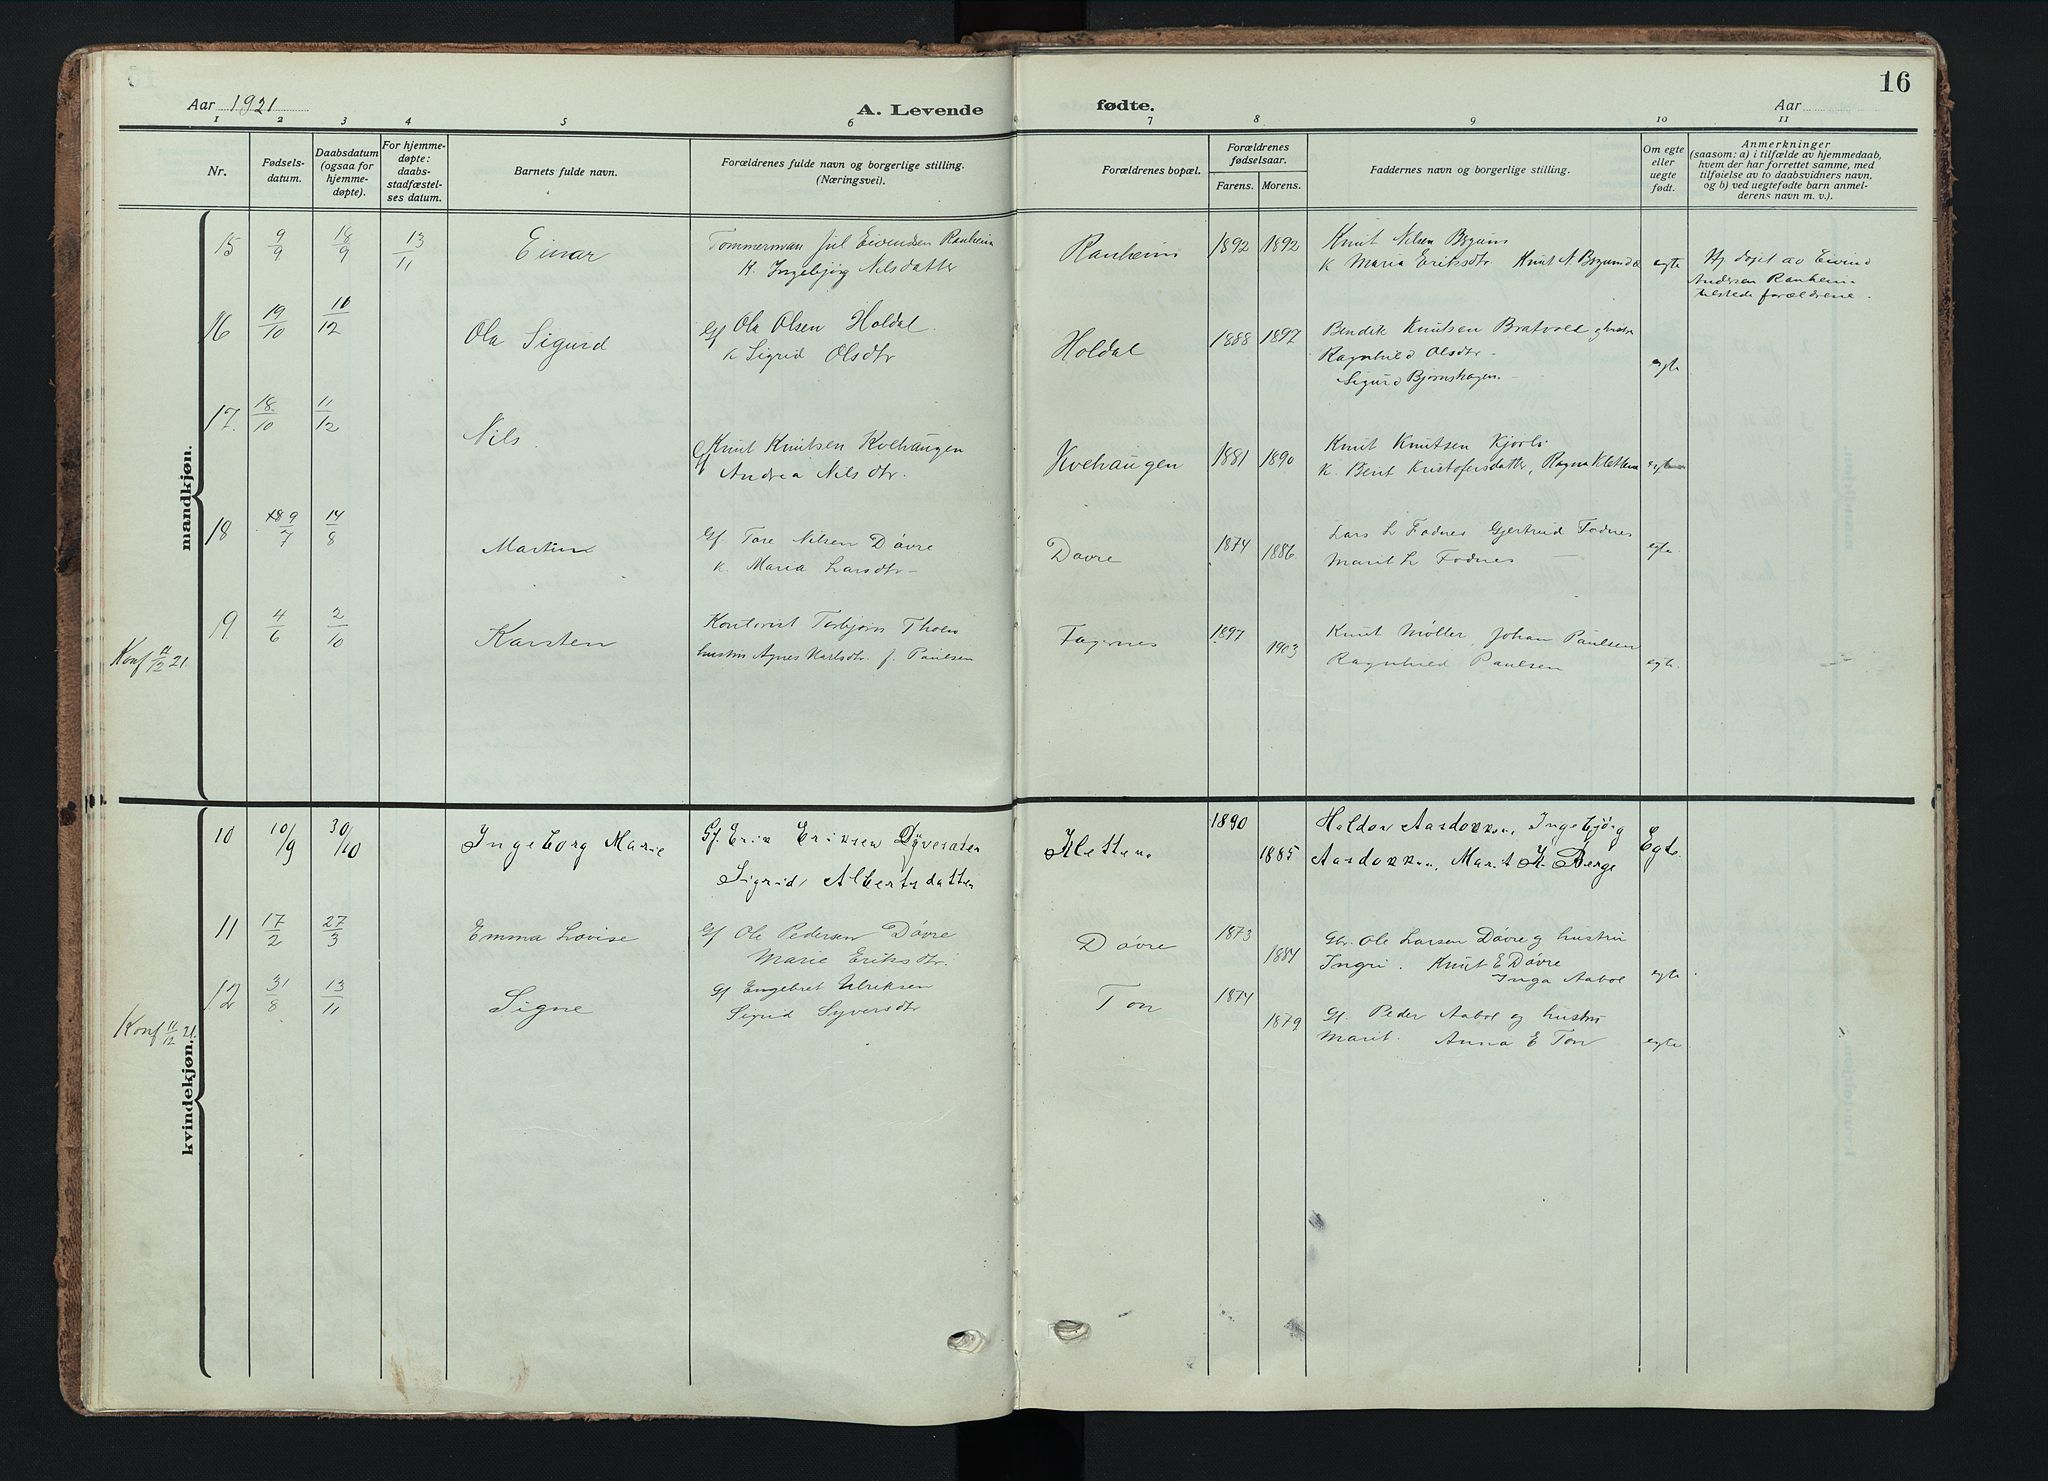 16
Aar 1921 A. Levende fødte. Aar
1 2 3 4 5 6 7 8 9 10 11
Nr. Fødselsdatum. Daabsdatum (ogsaa for hjemmedøpte). For hjemmedøpte: daabsstadfæstelses datum. Barnets fulde navn. Forældrenes fulde navn og borgerlige stilling. (Næringsvei). Forældrenes bopæl. Forældrenes fødselsaar. Farens. Morens. Faddernes navn og borgerlige stilling. Om egte eller uegte født. Anmerkninger (saasom: a) i tilfælde av hjemmedaab, hvem der har forrettet samme, med tilføielse av to daabsvidners navn, og b) ved uegtefødte barn anmelderens navn m. v.).
mandkjøn.
15 9/9 18/9 13/11 Einar Tømmerman Eivendsen Ranheim Ranheim 1892 1892 Knut Nilsen
K. Ingebjørg Nilsdatter K Maria Eriksdtr. Knut N. egte døpt av Eivind
Andersen Ranheim
tilstede forældrene.
16 19/10 11/12 Ola Sigurd Gf Ola Olsen Holdal. Holdal 1888 1897 Bendik Knutsen Bratvold og hustru
K Sigrid Olsdtr Ragnhild Olsdtr egte
Sigurd Bjørnshagen.
17. 18/10 11/12 Nils. Gf Knut Knutsen Kvehaugen Kvehaugen 1881 1890 Knut Knutsen
Andrea Nilsdtr. K. Berit Kristofersdatter, Ragna Kletten egte
18 9/7 14/8 Martin Gf. Tore Nilsen Døvre Døvre 1874 1886. Lars L Fodnes Gjertrud Fodnes
K. Maria Larsdtr Marit L Fodnes egte.
19 4/6 2/10 Karsten Kontorist Torbjørn Fagernes 1897 1903 Knut Møller, Johan Paulsen
Konf 11/12 21. hustru Agnes Karlsdtr. f. Paulsen Ragnhild Paulsen egte.
kvindekjøn.
10 10/9 30/10 Ingeborg Marie Gf. Erik Eriksen Kletten 1890 1885 Haldor Aasdokken, Ingebjørg
Sigrid Albertsdatter Aasdokken, Marit K. Berge Egte.
11 17/2 27/3 Emma Lovise Gf Ole Pedersen Døvre Døvre 1873 1884 Gbr. Ole Larsen Døvre og hustru
Marie Eriksdtr. Ingri. Knut E Døvre
Inga Aabol egte
12 31/8 13/11 Signe Gf Engebret Ulriksen Ton 1874 1879 Gf. Peder Aabol og hustru
Konf 11/12 21. Sigrid Syversdtr Marit. Anna E Ton egte.